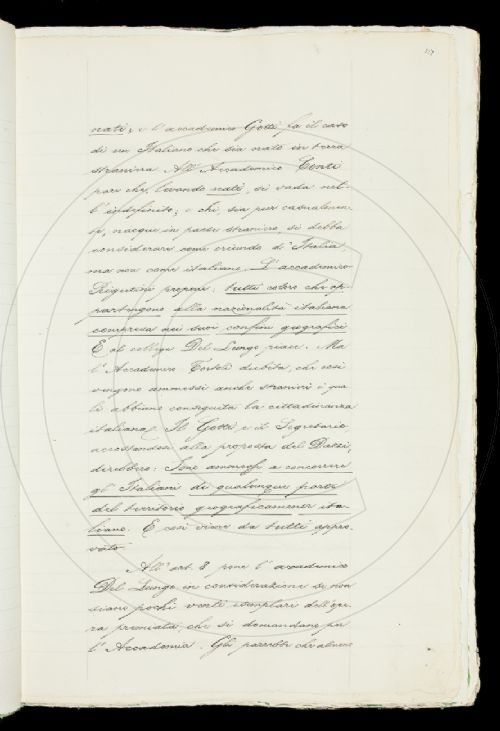 117
nati; e l'accademico Gotti fa il caso
di un Italiano che sia nato in terra
straniera. All'Accademico Conti
pare che, levando nati, si vada nel-
l'indefinito; e chi, sia pur casualmen-
te, nacque in paese straniero, si debba
considerare come oriundo d'Italia
ma non come italiano. L'accademico
Rigutini propone: tutti coloro che ap-
partengono alla nazionalità italiana
compresa nei suoi confini geografici
E al collega Del Lungo piace. Ma
l'Accademico Tortoli dubita, che così
vengano ammessi anche stranieri i qua-
li abbiano conseguita la cittadinanza
italiana. Il Gotti e il Segretario
accostandosi alla proposta del Dazzi,
direbbero: Sono ammessi a concorrere
gl'Italiani di qualunque parte
del territorio geograficamente ita-
liano. E così viene da tutti appro-
vato.
All'art. 8 pone l'accademico
Del Lungo in considerazione se non
siano pochi venti esemplari dell'ope-
ra premiata che si domandano per
l'Accademia. Gli parrebbe che almeno